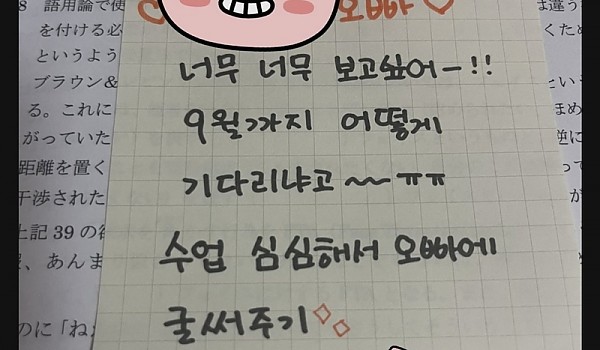 8 語用論で使
を付ける必
というよう
ブラウン&
る。これに
がっていた
距離を置く
干渉された
上記 39 の
、あんま
のに「ね
오빠
너무 너무 보고싶어-!!
9월까지 어떻게
기다리냐고 ~~ ㅠㅠ
수업 심심해서 오빠에
글써주기
は違う
くため
とい
ほめ
逆に
って
が